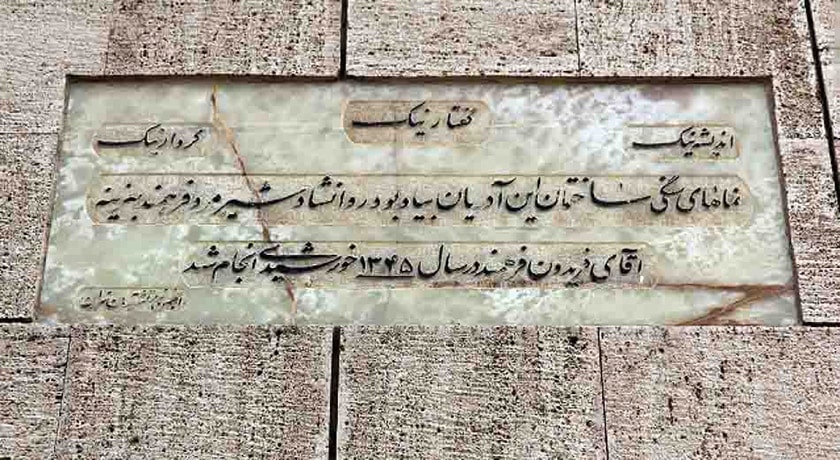 گفتار نیک
اندیشه نیک
کردار نیک
نماهای سنگی ساختمان این آدریان بیاد بود روانشاد شیرمرد فرهمند بهزینه
آقای فریدون فرهمند در سال ۱۳۴۵ خورشیدی انجام شد
انجمن زرتشتیان تهران